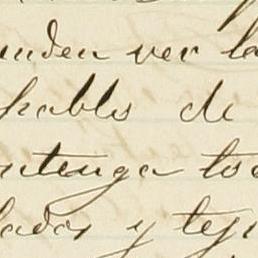 unden ver la
hables de
ntenga to
lados y tej